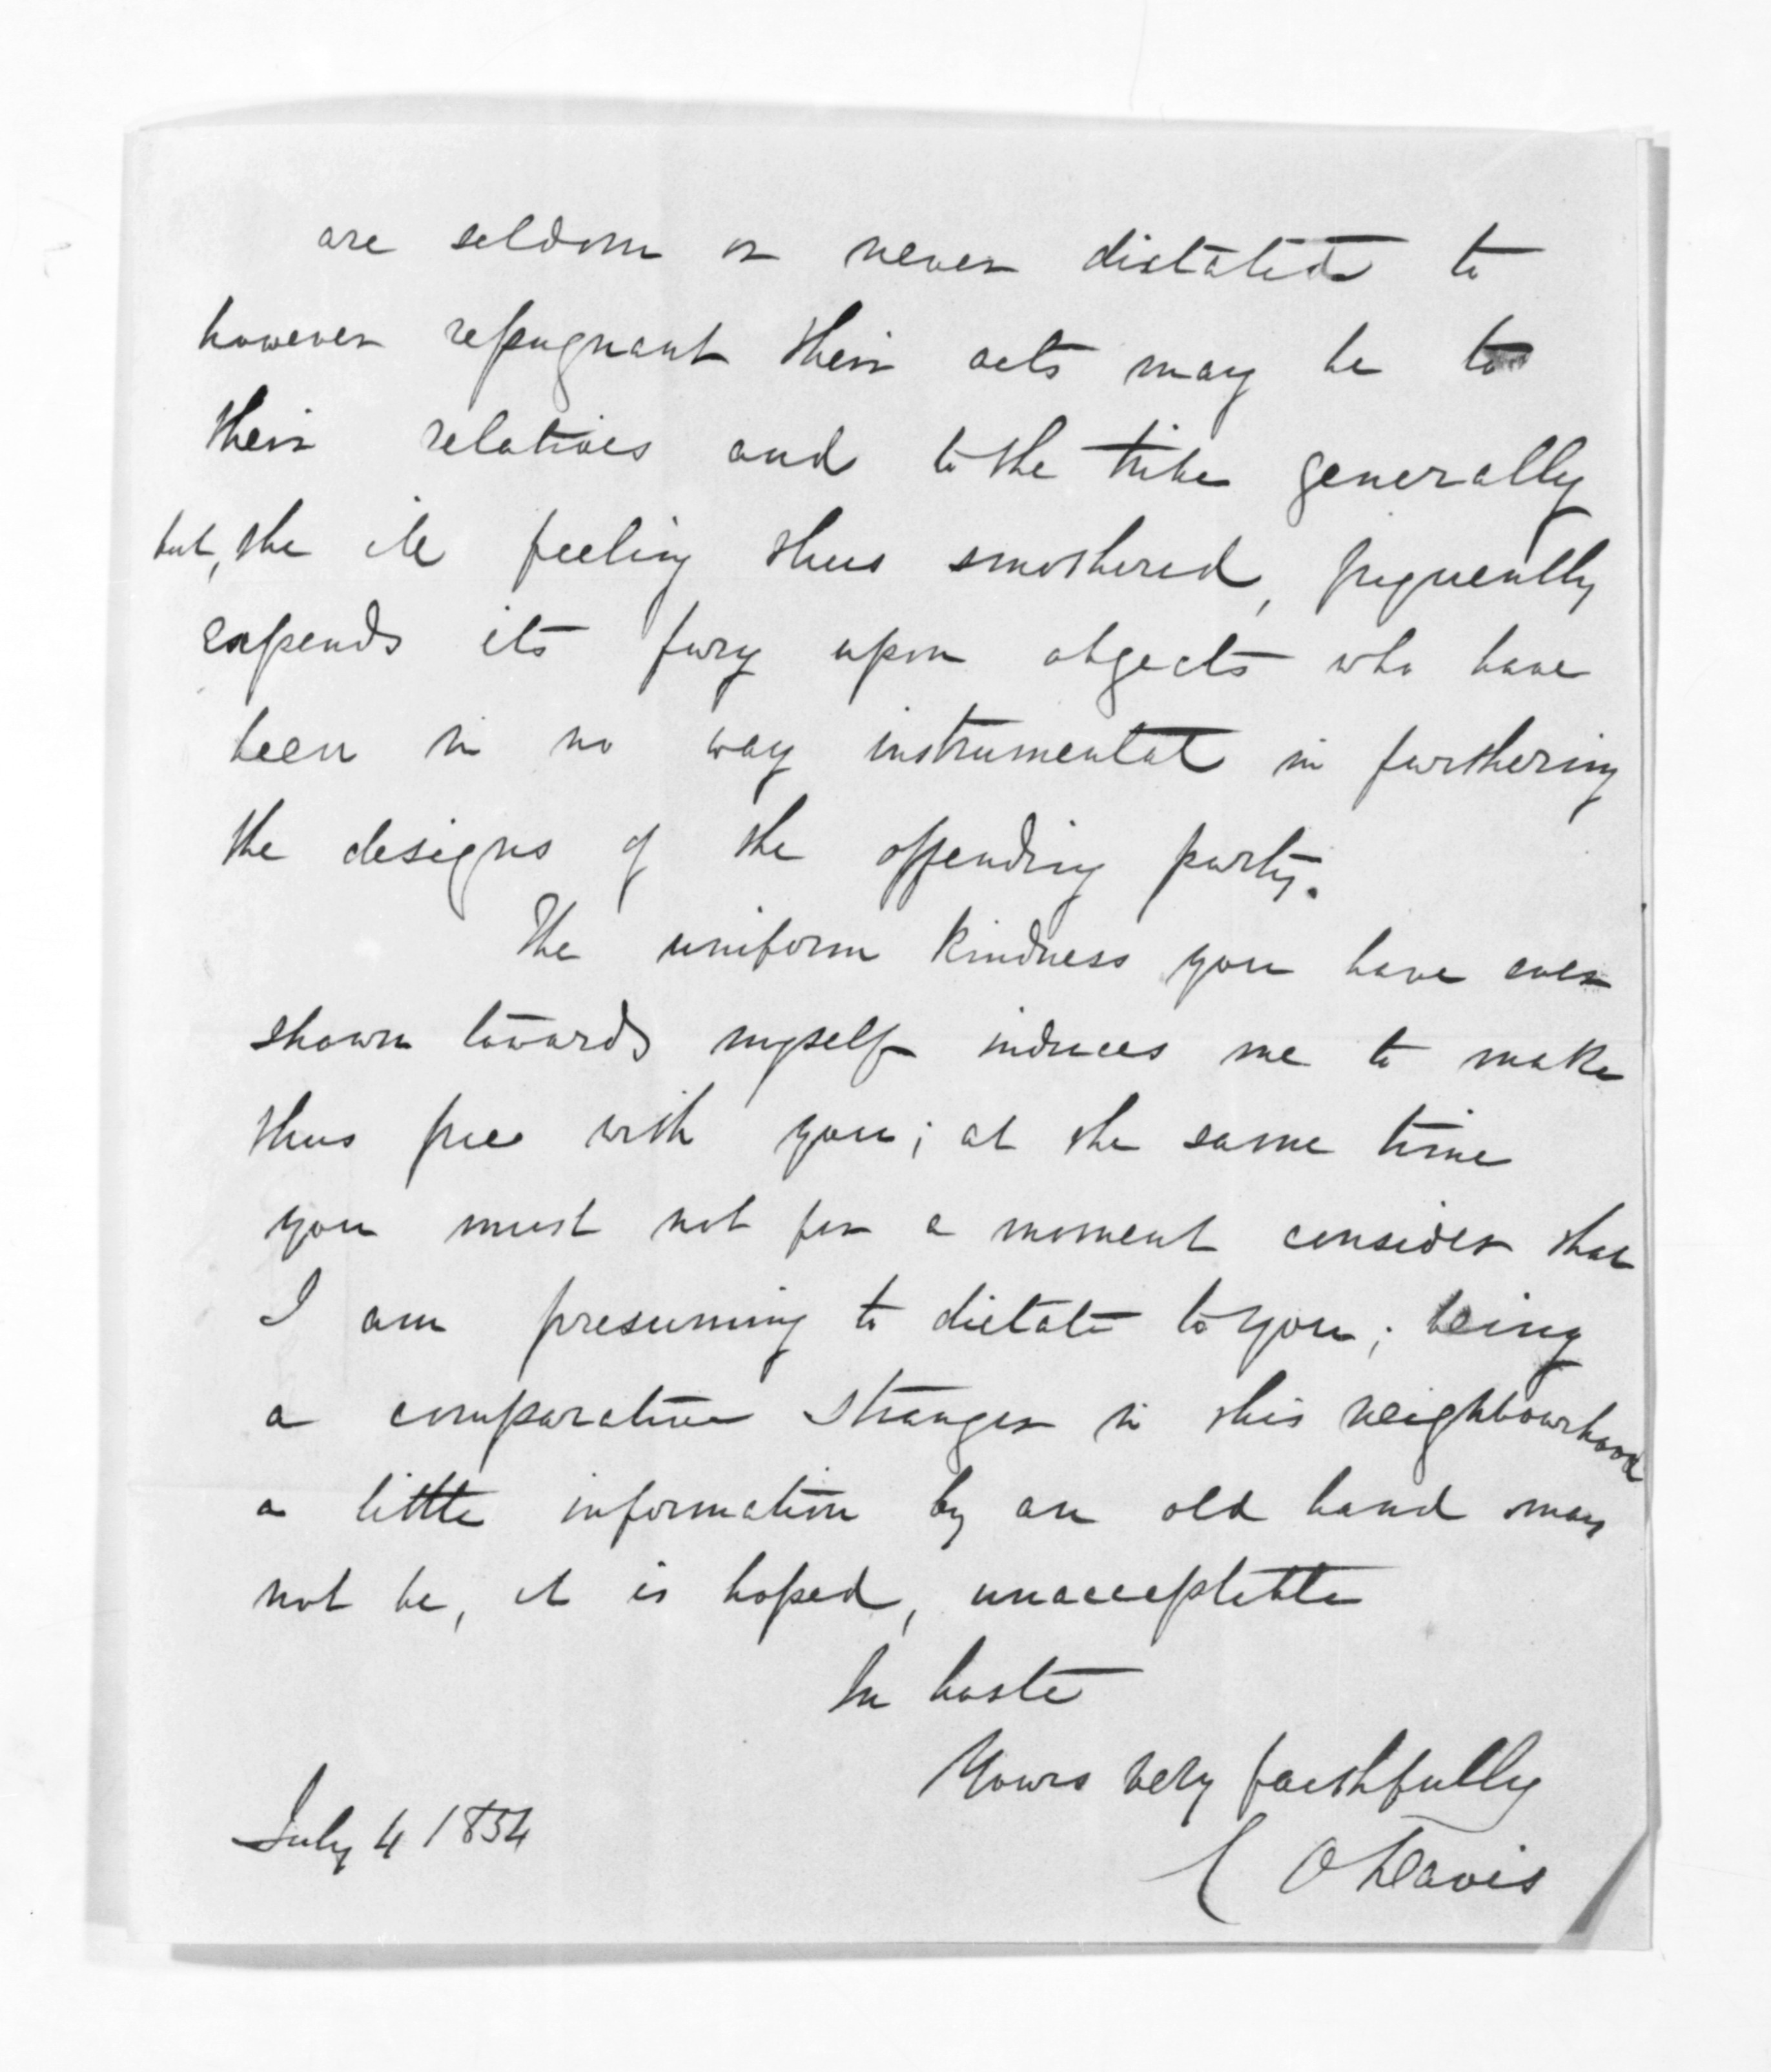 are seldom or never dictated to
however repugnant their acts may be to
their relatives and to the tribe generally
but, the ill feeling thus smothered, frequently
expends its fury upon objects who have
been in no way instrumental in furthering
the designs of the offending party.
The uniform kindness you have ever
shown towards myself induces me to make
thus free with you; at the same time
you must not for a moment consider that
I am presuming to dictate to you; being
a comparative stranger in this neighbourhood
a little information by an old hand may
not be, it is hoped, unacceptable
In haste
Yours very faithfully
July 4 1854
C O Davis